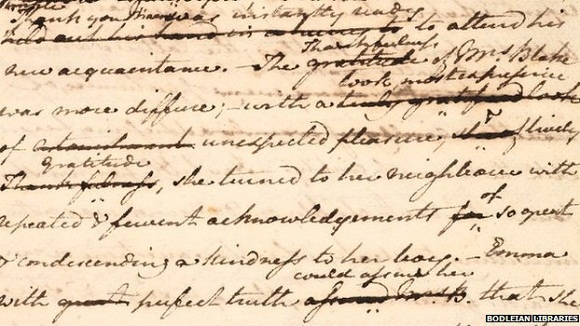 simple
Thank you Ma'am was instantly ready
held out his hand to attend his
Thankfulness
new acquaintance. – The gratitude of Mrs Blake
look most expressive
was more diffuse; – with a gratified look
of astonishment unexpected pleasure, & lively
gratitude
Thankfulness, she turned to her neighbour with
of
repeated & fervent acknowledgements for so great
& condescending a kindness to her boy. – Emma
could assure her
with great perfect truth assured Mrs B. that she
BODLEIAN LIBRARIES